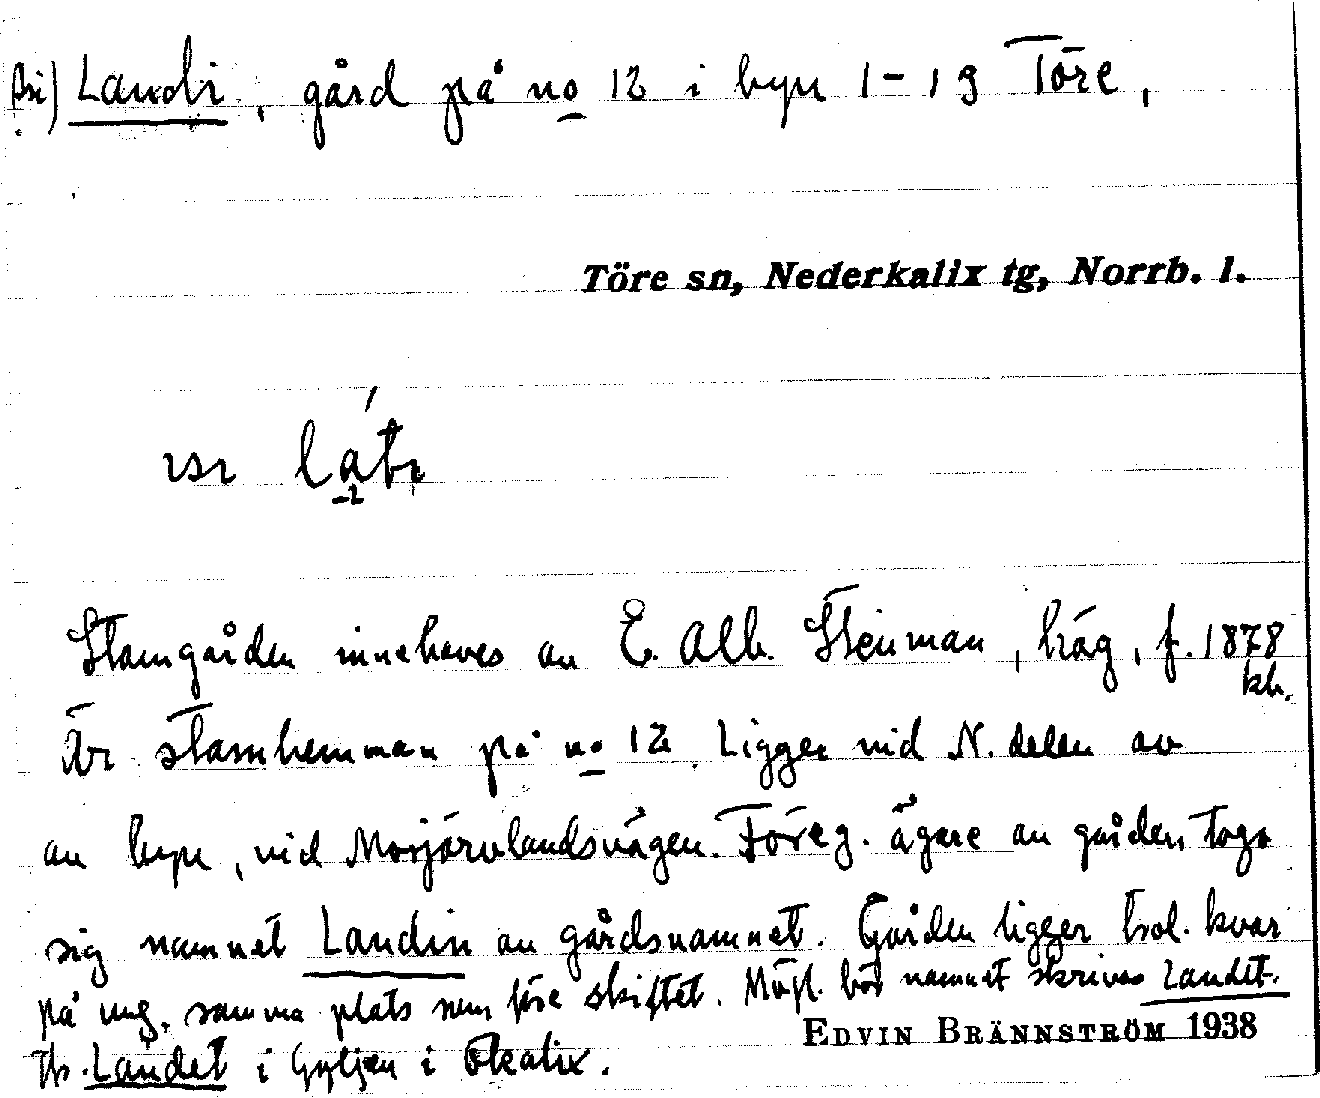 Landi, gård på no 12 i byn 1-19 Töre,
Töre sn, Nederkalix tg, Norrb. l.
Stamgården innehaves av E. Alb. Stenman, häg, f. 1878
Är stamhemman på no 12. Ligger vid N. delen av
av byn, vid Morjärvlandsvägen. Föreg. ägare av gården togo
sig namnet Landin av gårdsnamnet. Gården ligger trol. kvar
på ung. samma plats som före skiftet. Möjl. bör namnet skrivas Landet.
EDVIN BRÄNNSTRÖM 1938
Landet i Gyljen i Ökalix.